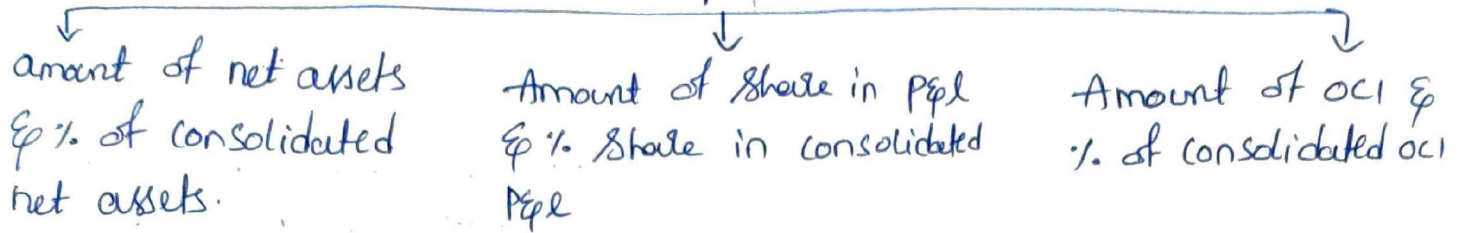 amount of net assets
& % of consolidated
net assets.
Amount of Share in P&l
& % Share in consolidated
P&l
Amount of OCI &
% of consolidated OCI